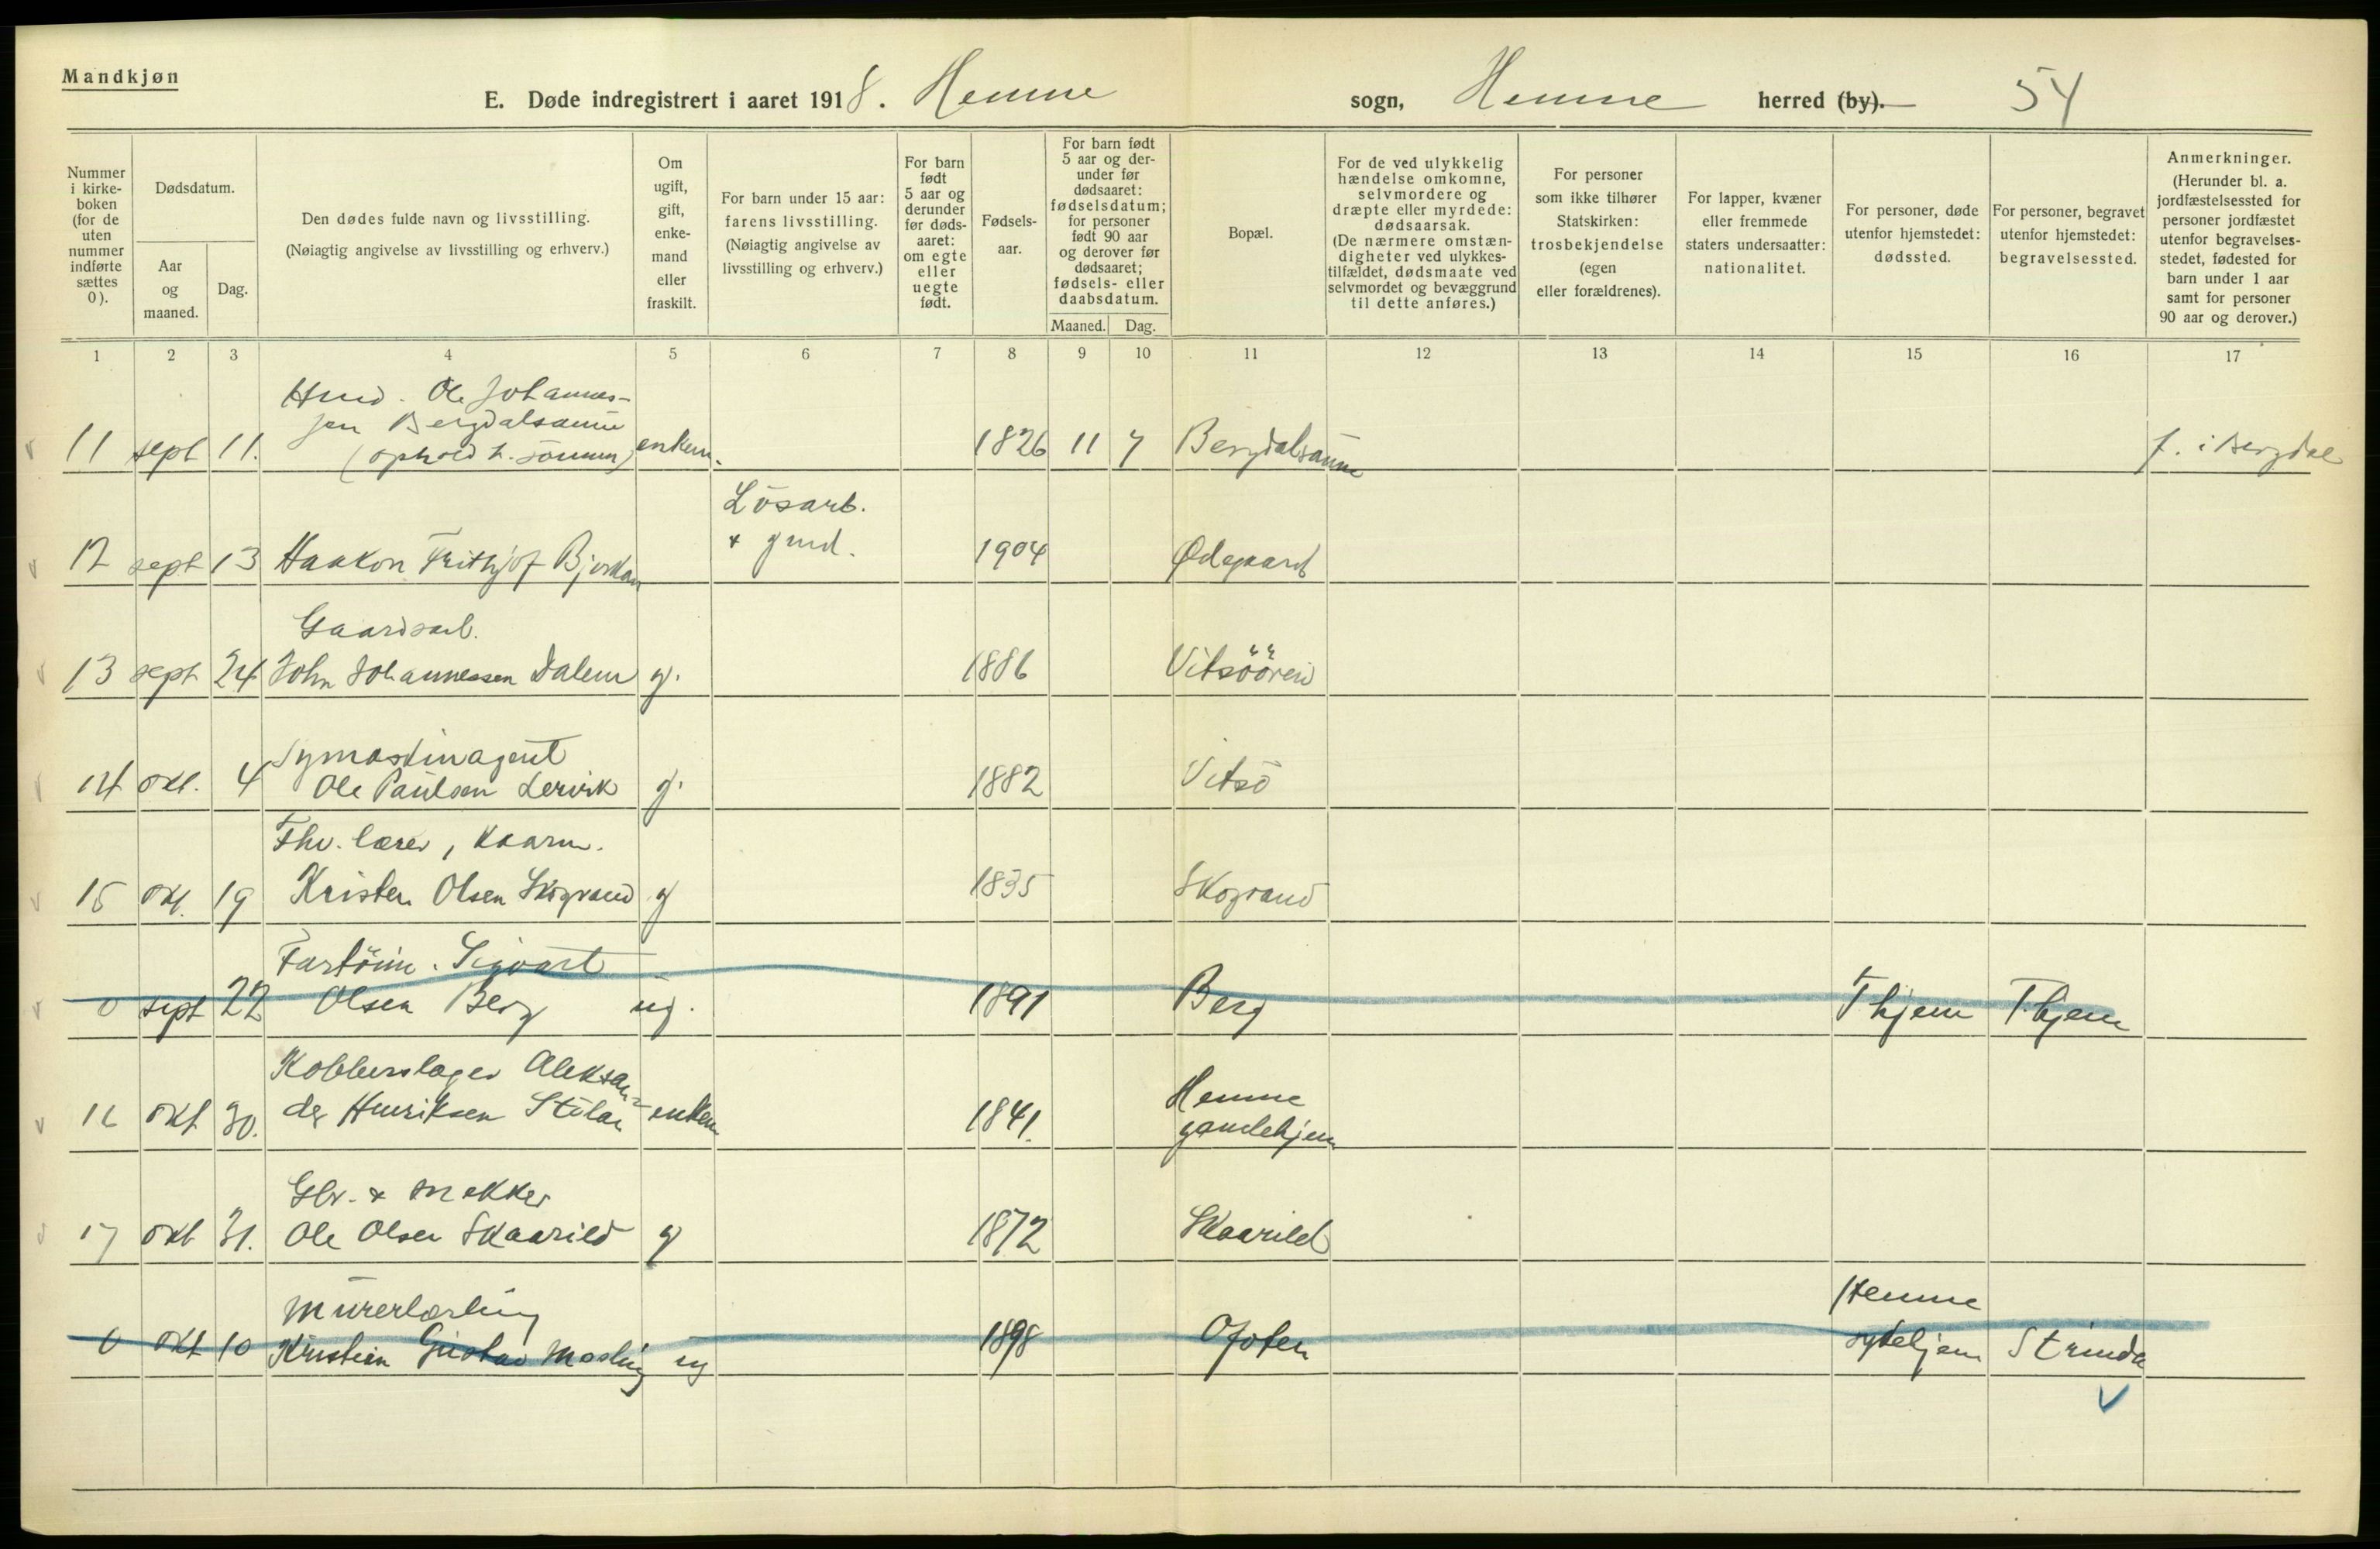 Mandkjøn
E. Døde indregistrert i aaret 1918. Hemne sogn, Hemne herred (by). 54
Nummer i kirke- boken (for de uten nummer indførte sættes 0).
Dødsdatum.
Aar og maaned.
Dag.
Den dødes fulde navn og livsstilling.
(Nøiagtig angivelse av livsstilling og erhverv.)
Om ugift, gift, enke- mand eller fraskilt.
For barn under 15 aar: farens livsstilling. (Nøiagtig angivelse av livsstilling og erhverv.)
For barn født 5 aar og derunder før døds- aaret: om egte eller uegte født.
Fødsels- aar.
For barn født 5 aar og der- under før dødsaaret: fødselsdatum; for personer født 90 aar og derover før dødsaaret; fødsels- eller daabsdatum.
Maaned. Dag.
Bopæl.
For de ved ulykkelig hændelse omkomne, selvmordere og dræpte eller myrdede: dødsaarsak. (De nærmere omstæn- digheter ved ulykkes- tilfældet, dødsmaate ved selvmordet og bevæggrund til dette anføres.)
For personer som ikke tilhører Statskirken: trosbekjendelse (egen eller forældrenes).
For lapper, kvæner eller fremmede staters undersaatter: nationalitet.
For personer, døde utenfor hjemstedet: dødssted.
For personer, begravet utenfor hjemstedet: begravelsessted.
Anmerkninger. (Herunder bl. a. jordfæstelsessted for personer jordfæstet utenfor begravelses- stedet, fødested for barn under 1 aar samt for personer 90 aar og derover.)
1 2 3 4 5 6 7 8 9 10 11 12 13 14 15 16 17
Ole Johannes-
sen Bergdalsaune
11 sept 11. (ophold h. sönnen) enkem. 1826 11 7 Bergdalsaune f. i Bergdal
Lösarb.
12 sept 13 Haakon Frithjof Bjorkan & gmd. 1904 Ødegaard
Gaardsarb.
13 sept 24 John Johannessen Dalem g. 1886 Vitsöören
Symaskinagent
14 okt. 4 Ole Paulsen Lervik g. 1882 Vitsö
Fhv. lærer, kaarm.
15 okt. 19 Kristen Olsen Skogrand g 1835 Skogrand
Sigvart
0 sept 22 Olsen Berg ug. 1891 Berg Thjem Thjem
Kobberslager Aleksan- Hemne
16 okt 30. der Henriksen Stölan enkem 1841. gamlehjem
Gbr. & snekker
17 okt 31. Ole Olsen Skaarild g 1872 Skaarild
Murerlærling Hemne
0 okt 10 Kristian Gustav Mosling ug 1898 Ofoten sykehjem Strinda